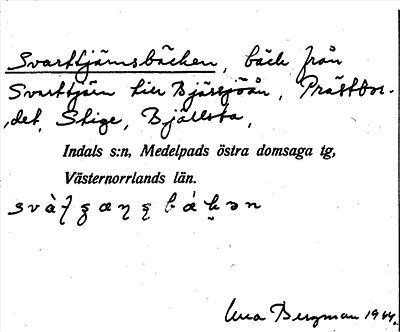 Svarttjärnsbäcken, bäck från
Svarttjärn till Bjässjöån, Prästbor-
det, Stige, Bjällsta,
Indals s:n, Medelpads östra domsaga tg,
Västernorrlands län.
Bergman 1944.